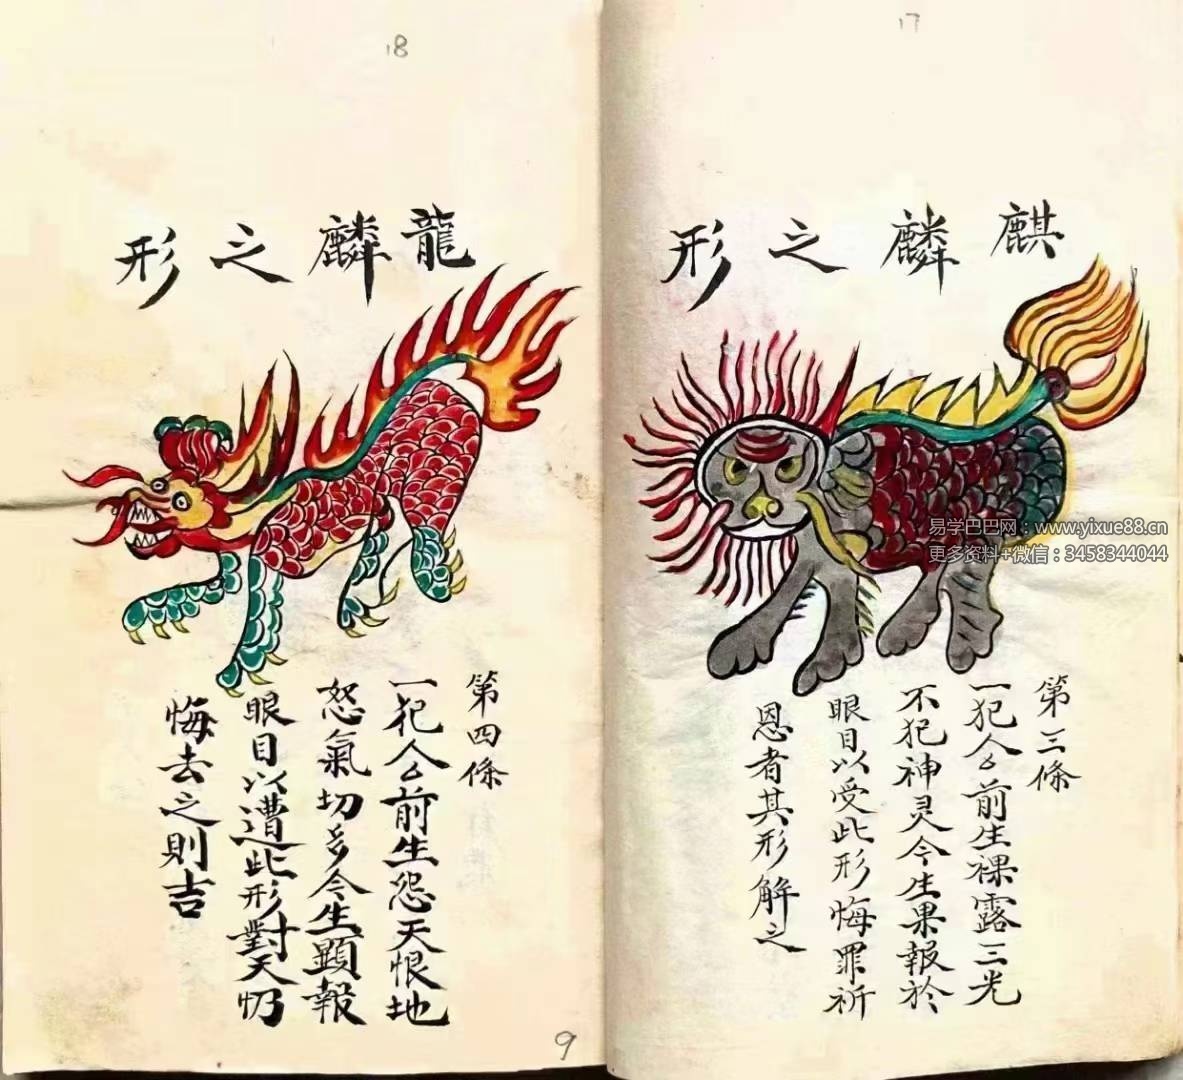 17
麒麟之形
第三條
一犯人公前生裸露三光
不犯神灵今生果報於
眼目以受此形悔罪祈
恩者其形解之
易学巴巴网：www.yixue88.cn
更多资料+微信：3458344044
18
龍麟之形
第四條
一犯人公前生怨天恨地
怒氣切多今生顕報
眼目以遭此形對天忉
悔去之則吉
9